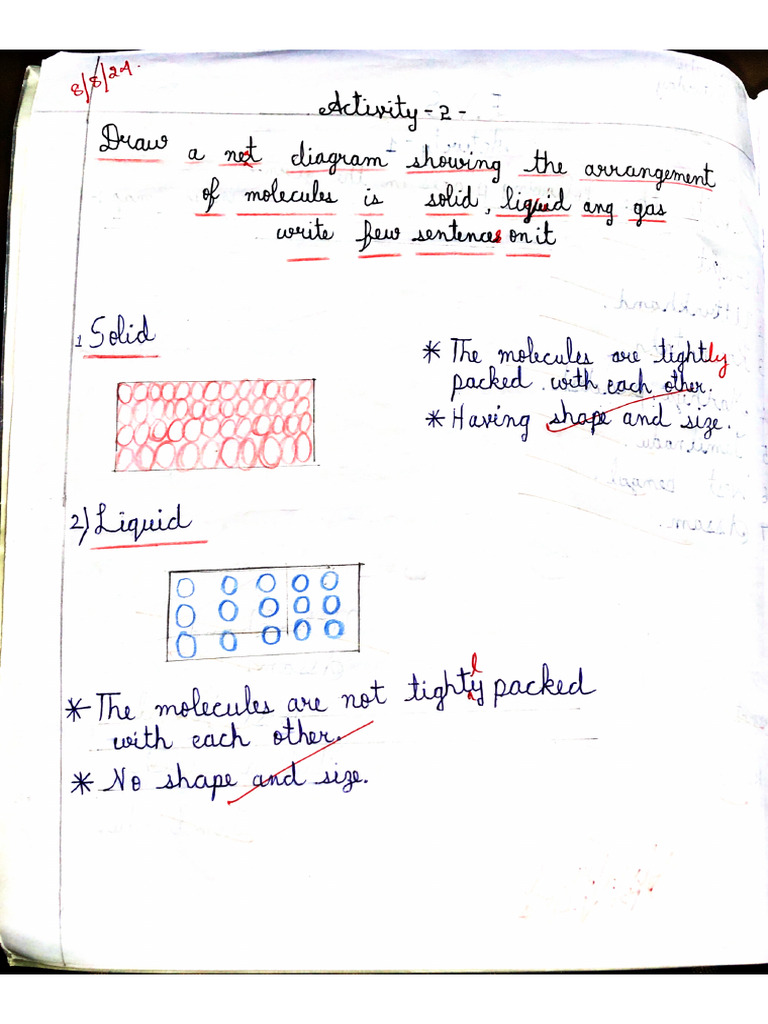 8/8/24.
Activity - 2 -
Draw a net diagram showing the arrangement
of molecules is solid, liquid ang gas
write few sentences on it
1 Solid
* The molecules are tightly
packed with each other.
* Having shape and size.
2) Liquid
* The molecules are not tightly packed
with each other.
* No shape and size.